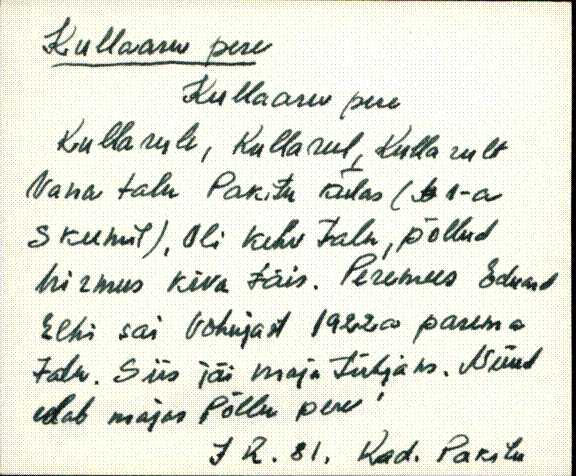 Kullaaru pere
Kullaaru pere
Kullarule, Kullarul, Kullarult
Vana talu Pakitu külas (1-a
skeemil), Oli kehv talu, põllud
hirmus kiva täis. Peremees Eduard
Elhi sai Vohnjast 1922a parema
talu. Siis jäi maja tühjaks. Nüüd
elab majas Põllu pere!
J R. 81. Kad. Pakitu